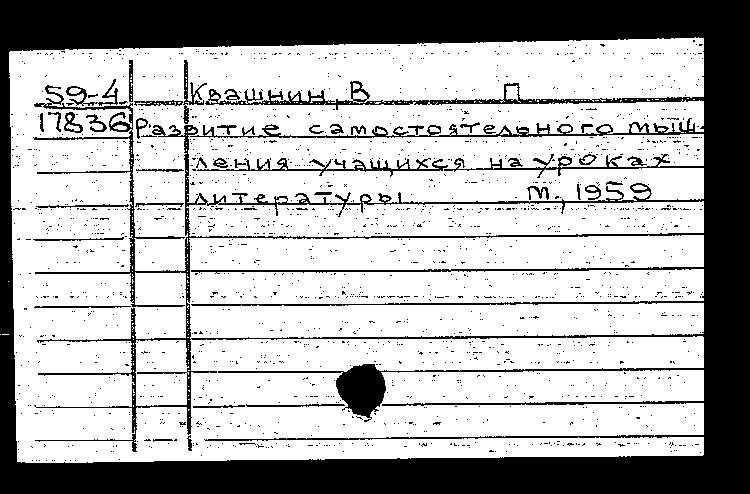 59-4 Квашнин, В П
17836 Развитие самостоятельного мыш-
ления учащихся на уроках
литературы м., 1959